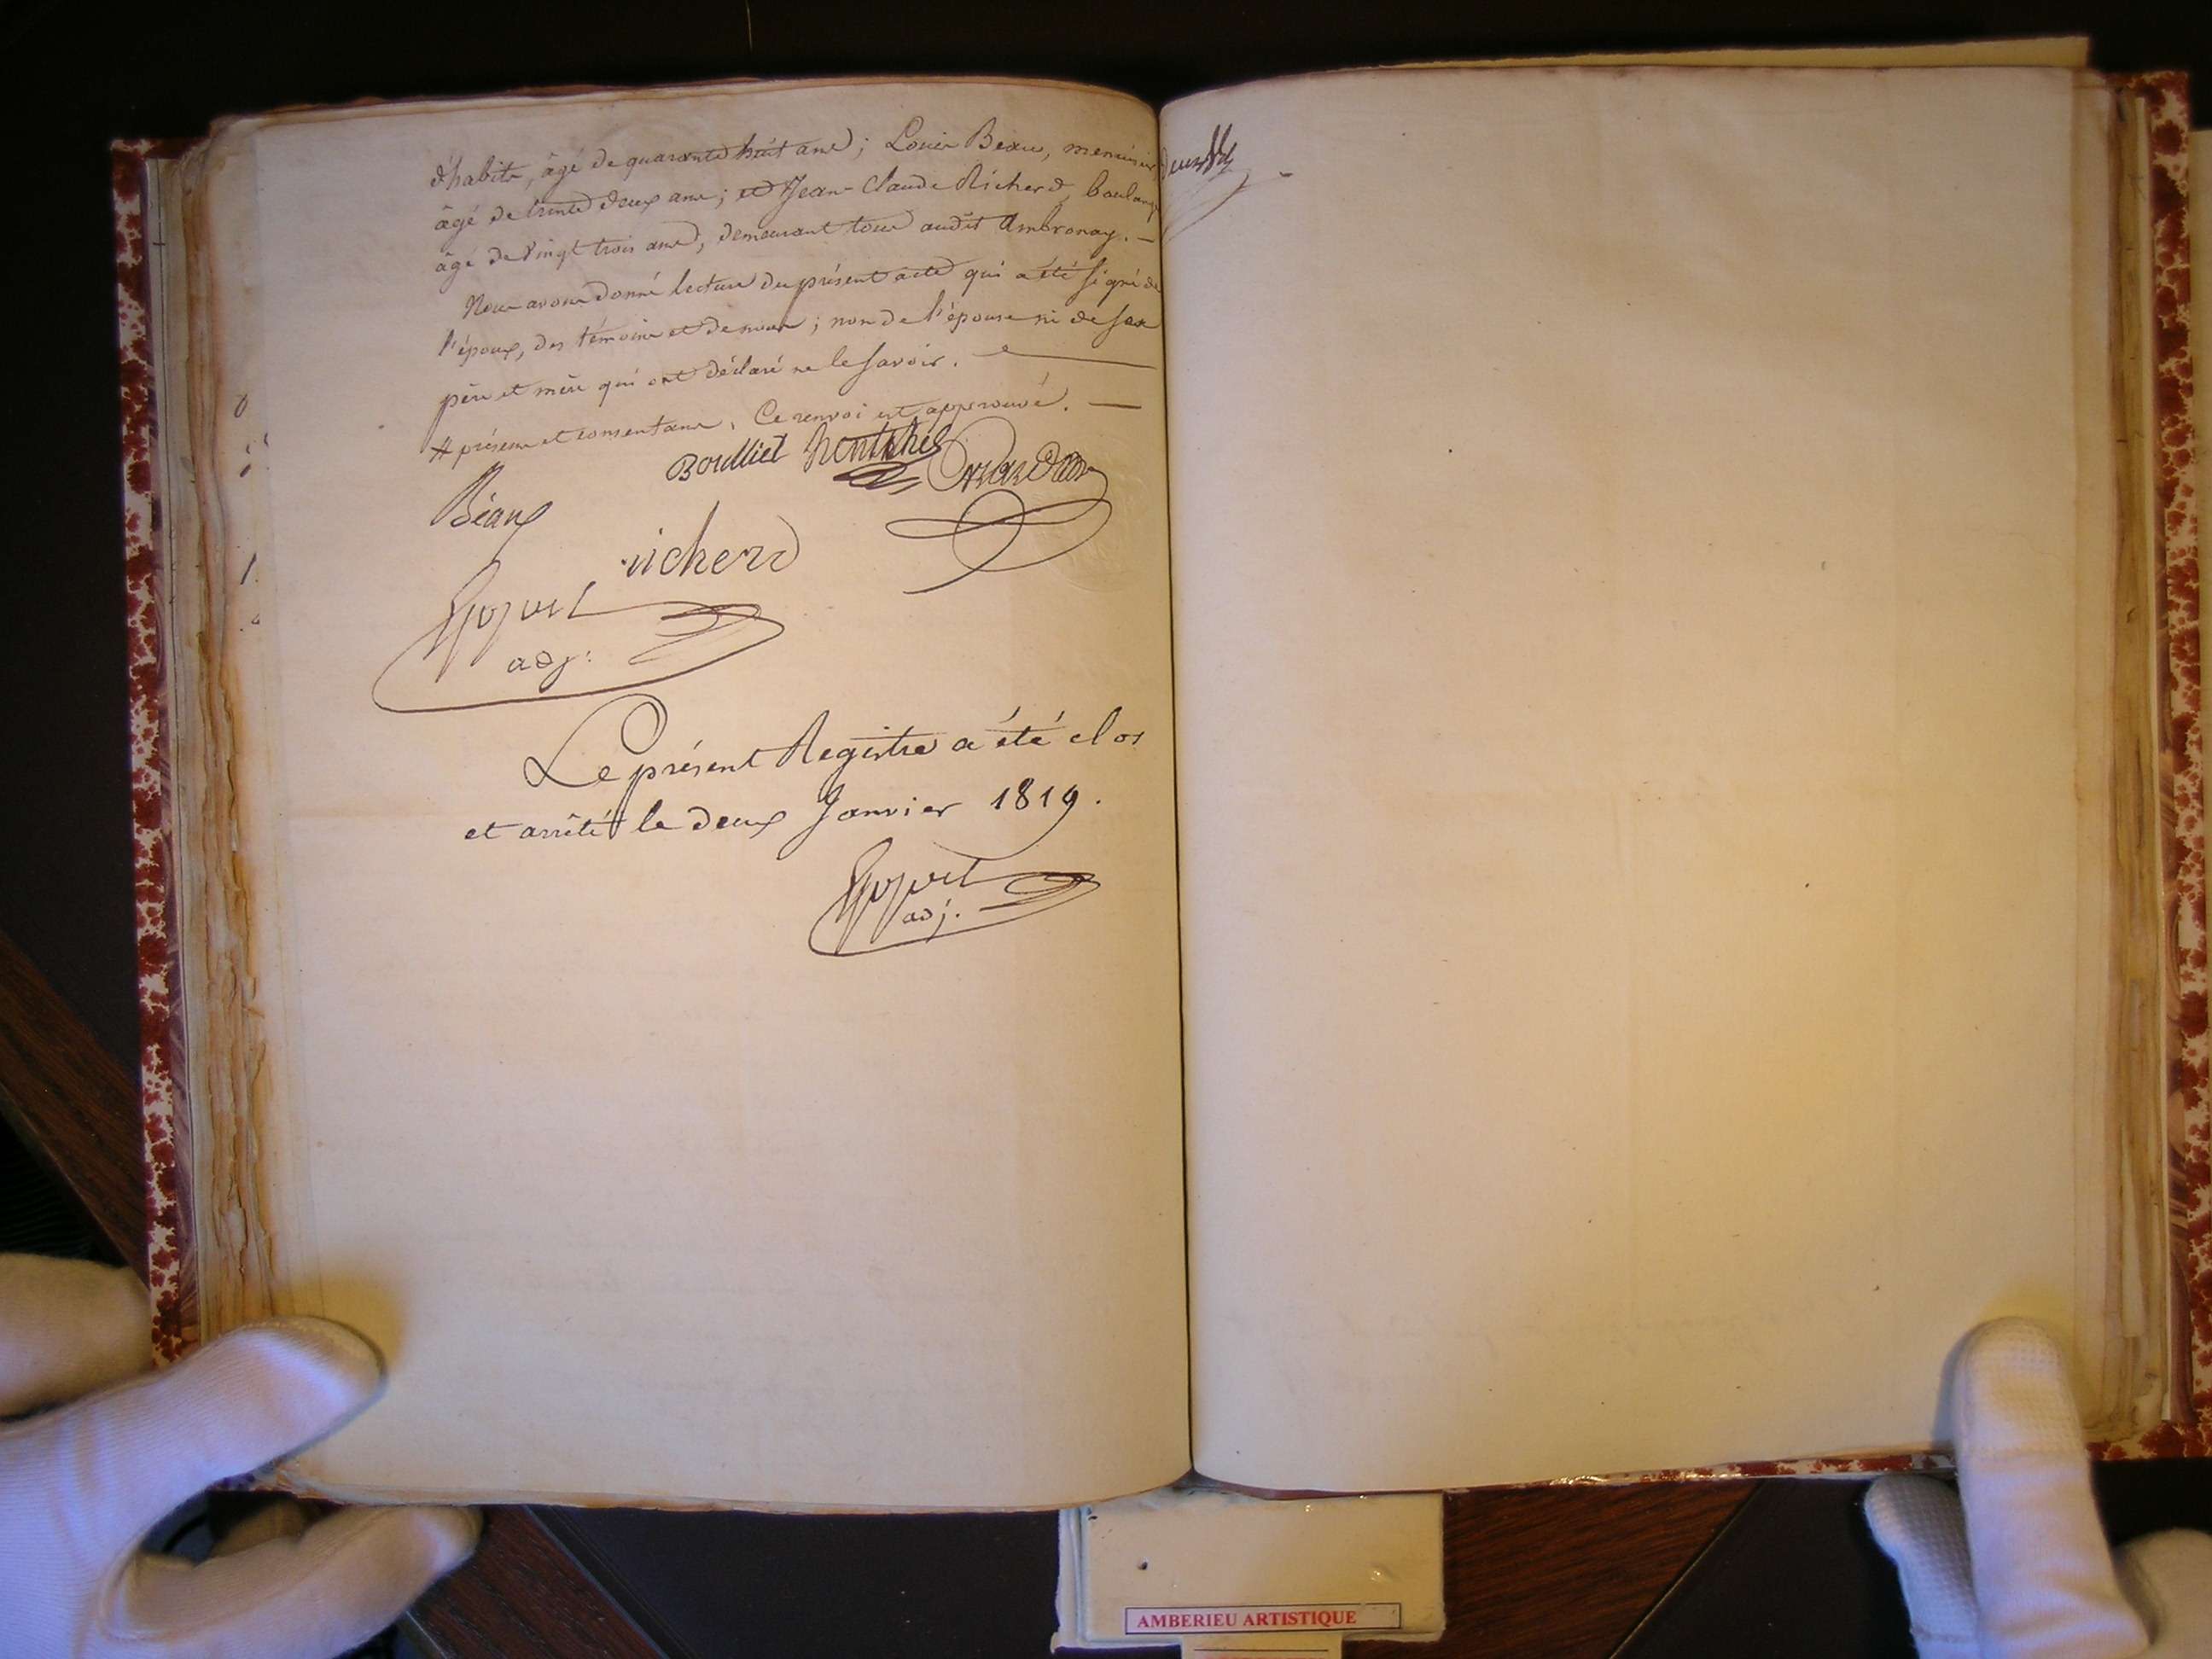 d'habits, âgé de quarante huit ans; Louis Beau, menuisier
âgé de trente deux ans; et Jean-Claude Richerd, boulang
âgé de vingt trois ans, demeurant tous audit Ambronay. —
Nous avons donné lecture du présent acte qui a été signé de
l'époux, des témoins et de nous; non de l'épouse ni de ses
père et mère qui ont déclaré ne le savoir. —
# présens et consentans. Ce renvoi est approuvé. —
Boulliet
Béaux
richerd
adj.
Le présent Registre a été clos
et arrêté le deux Janvier 1819.
adj.
AMBERIEU ARTISTIQUE